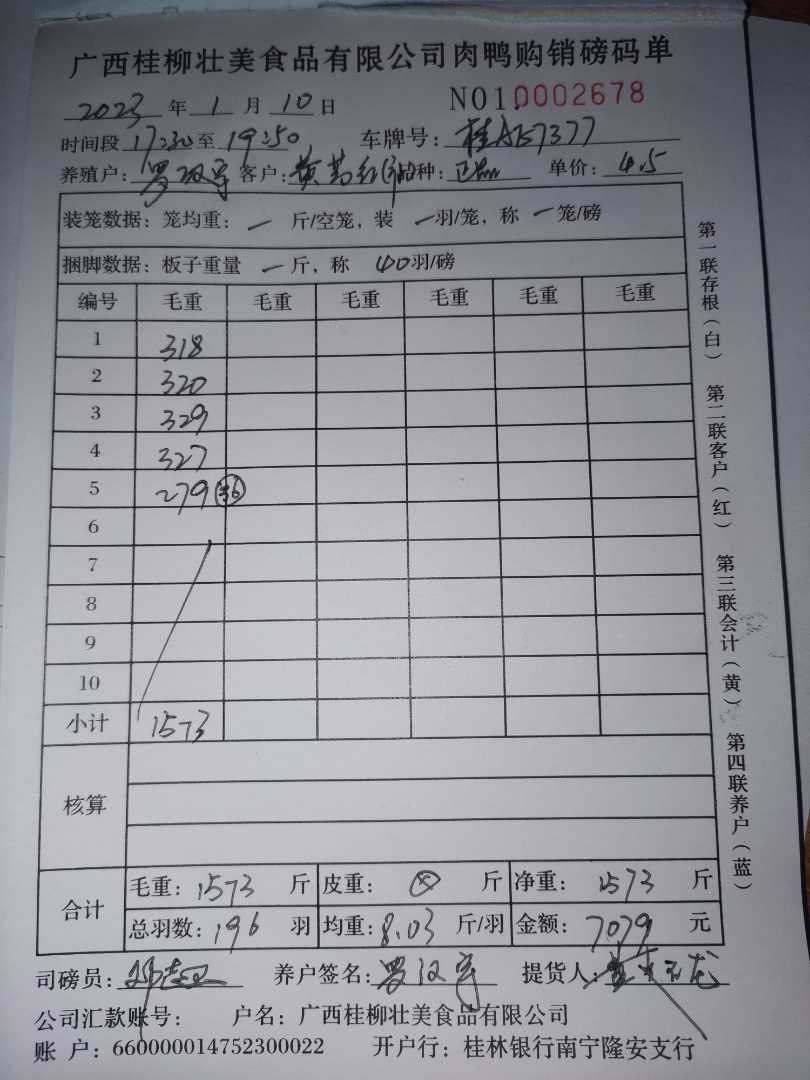 广西桂柳壮美食品有限公司肉鸭购销磅码单
2023 年 1 月 10 日 NO10002678
时间段 17:30 至 19:50 车牌号: 桂 7377
养殖户: 罗汉宁 客户: 黄 红 品种: 正品 单价: 4.5
装笼数据: 笼均重: 一 斤/空笼, 装 一 羽/笼, 称 一 笼/磅
捆脚数据: 板子重量 一 斤, 称 40 羽/磅
编号 毛重 毛重 毛重 毛重 毛重 毛重
1 318
2 320
3 329
4 327
5 279 36
6
7
8
9
10
小计 1573
核算
合计 毛重: 1573 斤 皮重: ⊗ 斤 净重: 1573 斤
总羽数: 196 羽 均重: 8.03 斤/羽 金额: 7079 元
司磅员: 养户签名: 罗汉宁 提货人: 龙
公司汇款账号: 户名: 广西桂柳壮美食品有限公司
账 户: 660000014752300022 开户行: 桂林银行南宁隆安支行
第一联存根(白) 第二联客户(红) 第三联会计(黄) 第四联养户(蓝)